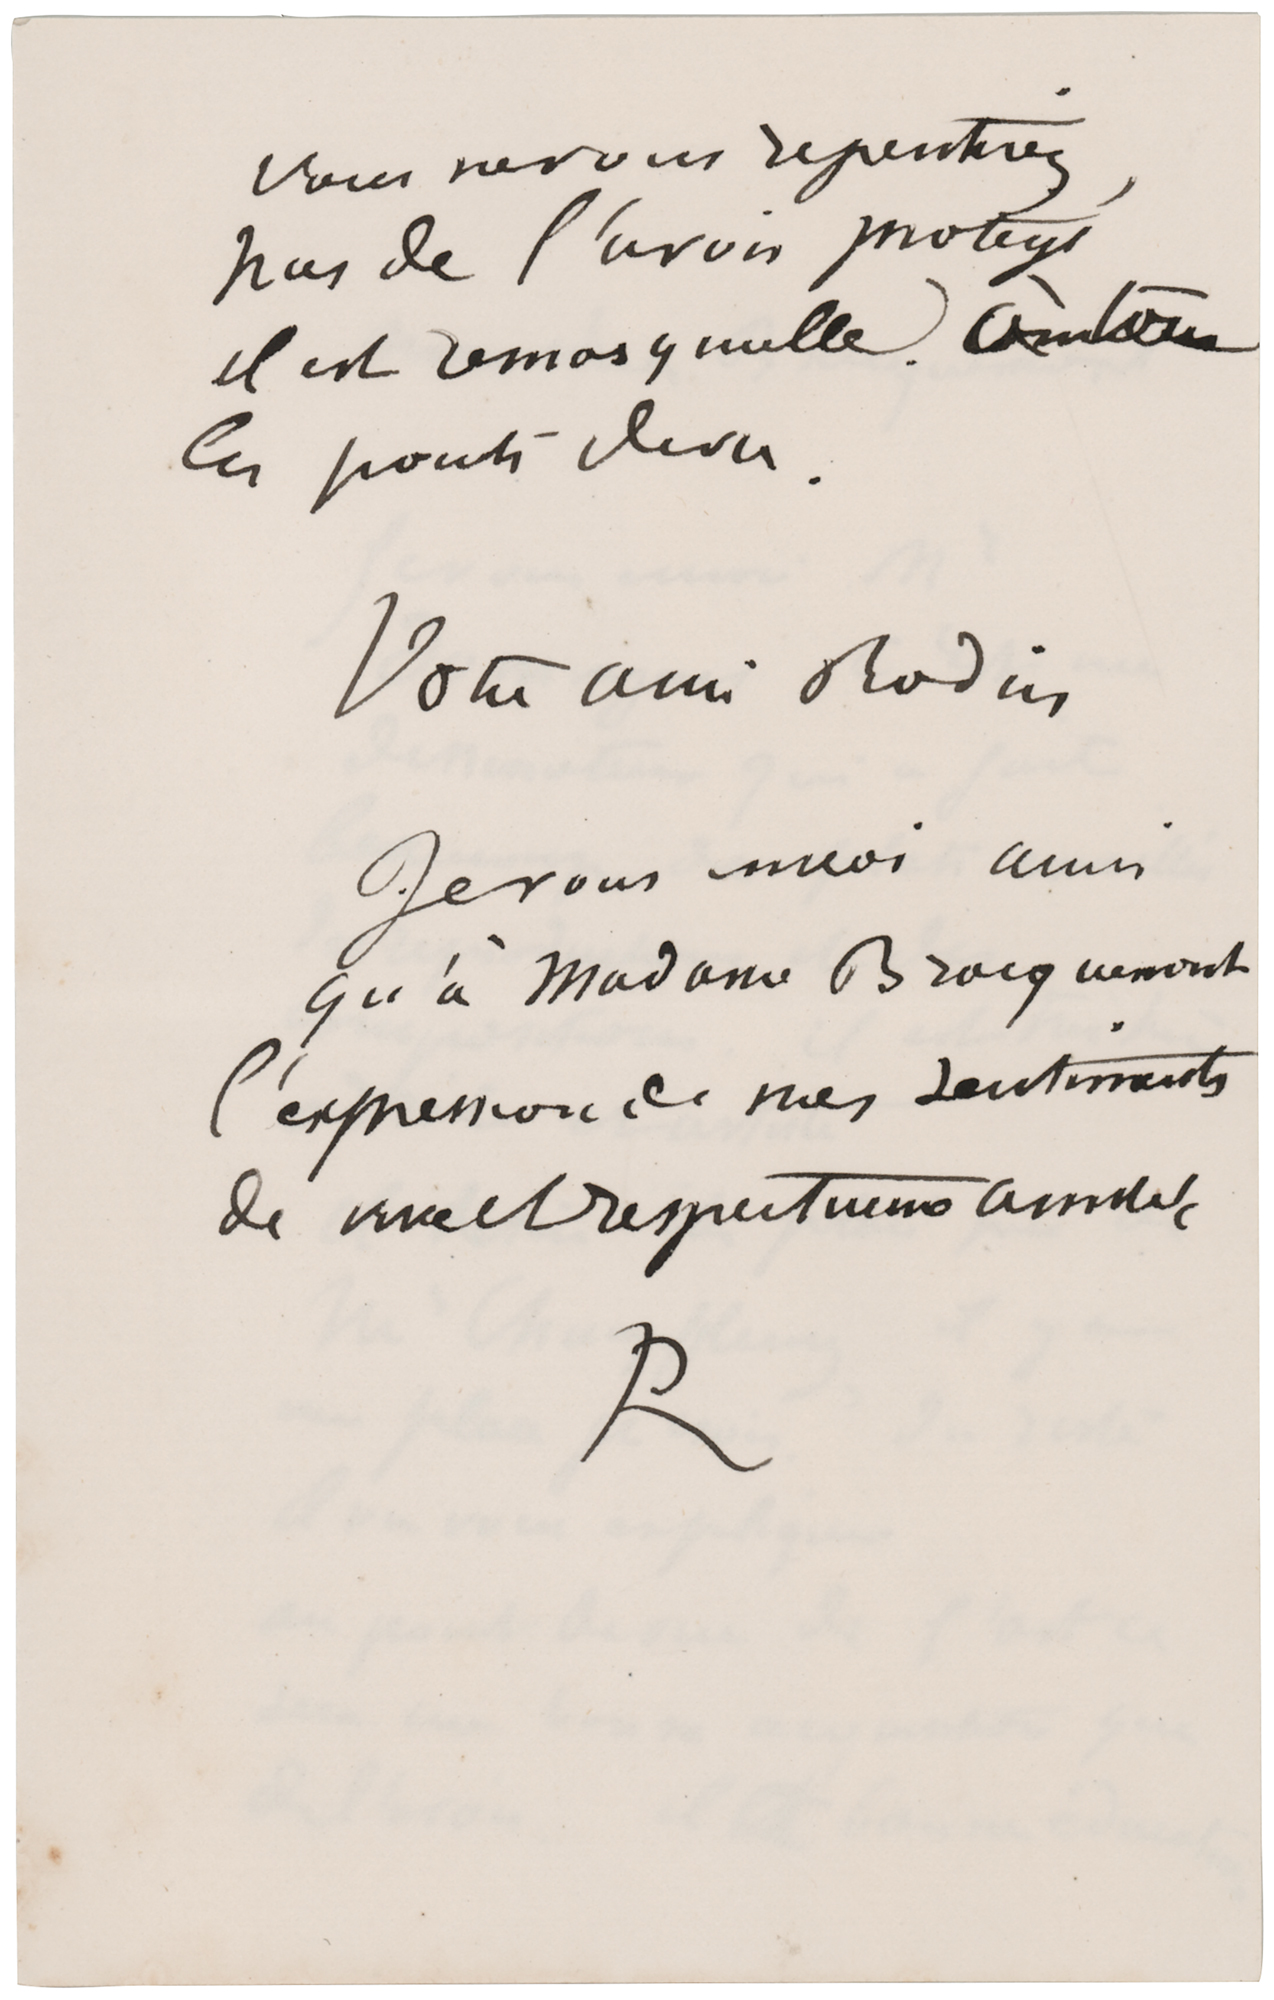 vous ne vous repentirez
pas de l'avoir protégé
il est remarquable. à tous
les points de vu.
Votre ami Rodin
Je vous envoi ainsi
qu'à Madame Bracquemont
l'expression de mes sentiments
de vive et respectueuse amitié
R